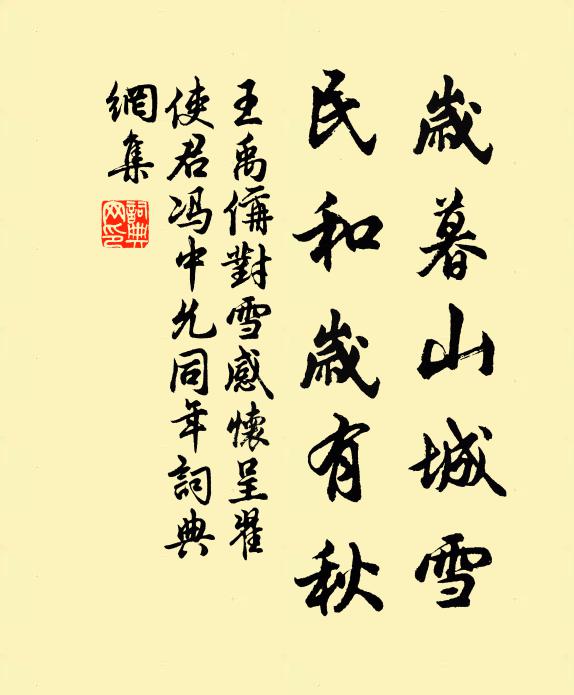 歲暮山城雪
民和歲有秋
王禹偁對雪感懷呈翟
使君馮中允同年詞典
網集
詞典網印